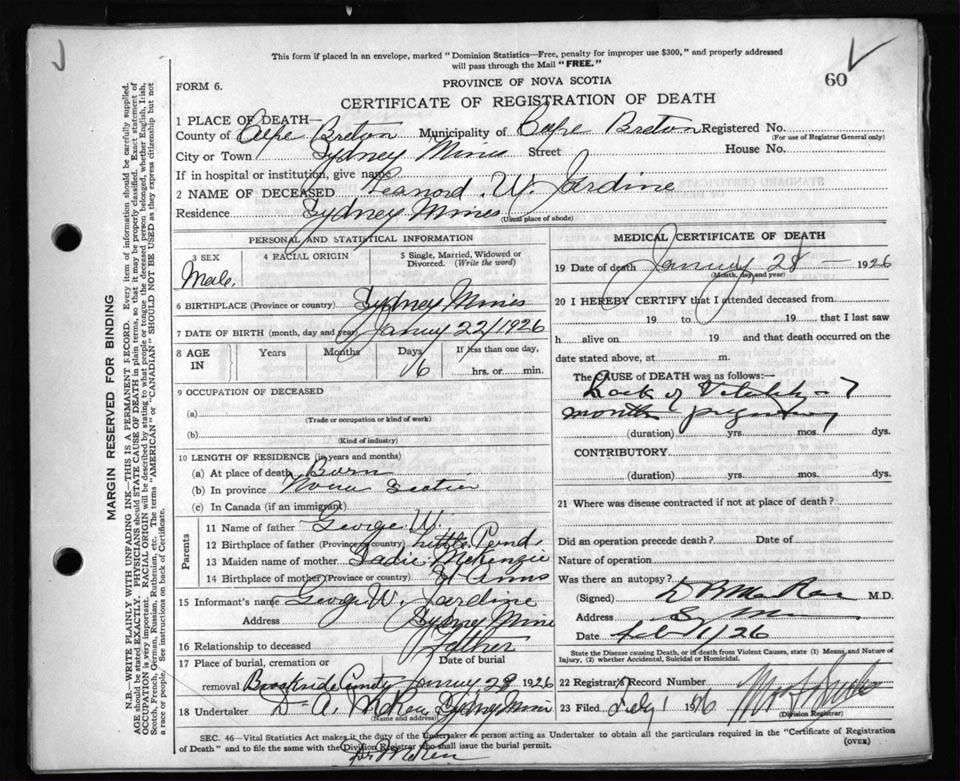 This form if placed in an envelope, marked "Dominion Statistics—Free, penalty for improper use $300," and properly addressed
will pass through the Mail "FREE."
60
FORM 6.
PROVINCE OF NOVA SCOTIA
CERTIFICATE OF REGISTRATION OF DEATH
1 PLACE OF DEATH—
County of Cape Breton Municipality of Cape Breton Registered No.
(For use of Registrar General only)
City or Town Sydney Mines Street House No.
If in hospital or institution, give name
2 NAME OF DECEASED Leanord W. Jardine
Residence Sydney Mines
(Usual place of abode)
PERSONAL AND STATISTICAL INFORMATION
3 SEX 4 RACIAL ORIGIN 5 Single, Married, Widowed or
Divorced. (Write the word)
Male.
6 BIRTHPLACE (Province or country) Sydney Mines
7 DATE OF BIRTH (month, day and year) 22/1926
8 AGE IN Years Months Days If less than one day,
6 hrs. or min.
9 OCCUPATION OF DECEASED
(a)
(Trade or occupation or kind of work)
(b)
(Kind of industry)
10 LENGTH OF RESIDENCE (in years and months)
(a) At place of death Born
(b) In province Nova Scotia
(c) In Canada (if an immigrant)
Parents
11 Name of father George W.
12 Birthplace of father (Province or country) Little Pond,
13 Maiden name of mother Sadie McKenzie
14 Birthplace of mother (Province or country) St Anns
15 Informant's name George W. Jardine
Address Sydney Mines
16 Relationship to deceased Father
17 Place of burial, cremation or Date of burial
removal Brookside 29 1926
18 Undertaker D. A. Sydney Mines
(Name and address)
MEDICAL CERTIFICATE OF DEATH
19 Date of death 28 — 1926
(Month, day and year)
20 I HEREBY CERTIFY that I attended deceased from
19 to 19 that I last saw
h alive on 19 and that death occurred on
date stated above, at m.
The CAUSE OF DEATH was as follows:—
Lack of Vitality – 7
months
(duration) yrs. mos. dys.
CONTRIBUTORY
(duration) yrs. mos. dys.
21 Where was disease contracted if not at place of death?
Did an operation precede death? Date of
Nature of operation
Was there an autopsy?
(Signed) M.D.
Address
Date Feb 1/26
State the Disease causing Death, or in death from Violent Causes, state (1) Means, and Nature of
Injury, (2) whether Accidental, Suicidal or Homicidal.
22 Registrar's Record Number
23 Filed 1 1926
(Division Registrar)
SEC. 46—Vital Statistics Act makes it the duty of the Undertaker or person acting as Undertaker to obtain all the particulars required in the "Certificate of Registration
of Death" and to file the same with the Division Registrar who shall issue the burial permit.
(OVER)
MARGIN RESERVED FOR BINDING
N.B.—WRITE PLAINLY WITH UNFADING INK—THIS IS A PERMANENT RECORD. Every item of information should be carefully supplied.
AGE should be stated EXACTLY. PHYSICIANS should STATE CAUSE OF DEATH in plain terms, so that it may be properly classified. Exact statement of
OCCUPATION is very important. RACIAL ORIGIN will be described by stating to what people or tongue the deceased person belonged, whether English, Irish,
Scotch, French, German, Russian, Ruthenian, etc. The terms "AMERICAN" or "CANADIAN" SHOULD NOT BE USED as they express citizenship but not
a race or people. See instructions on back of Certificate.